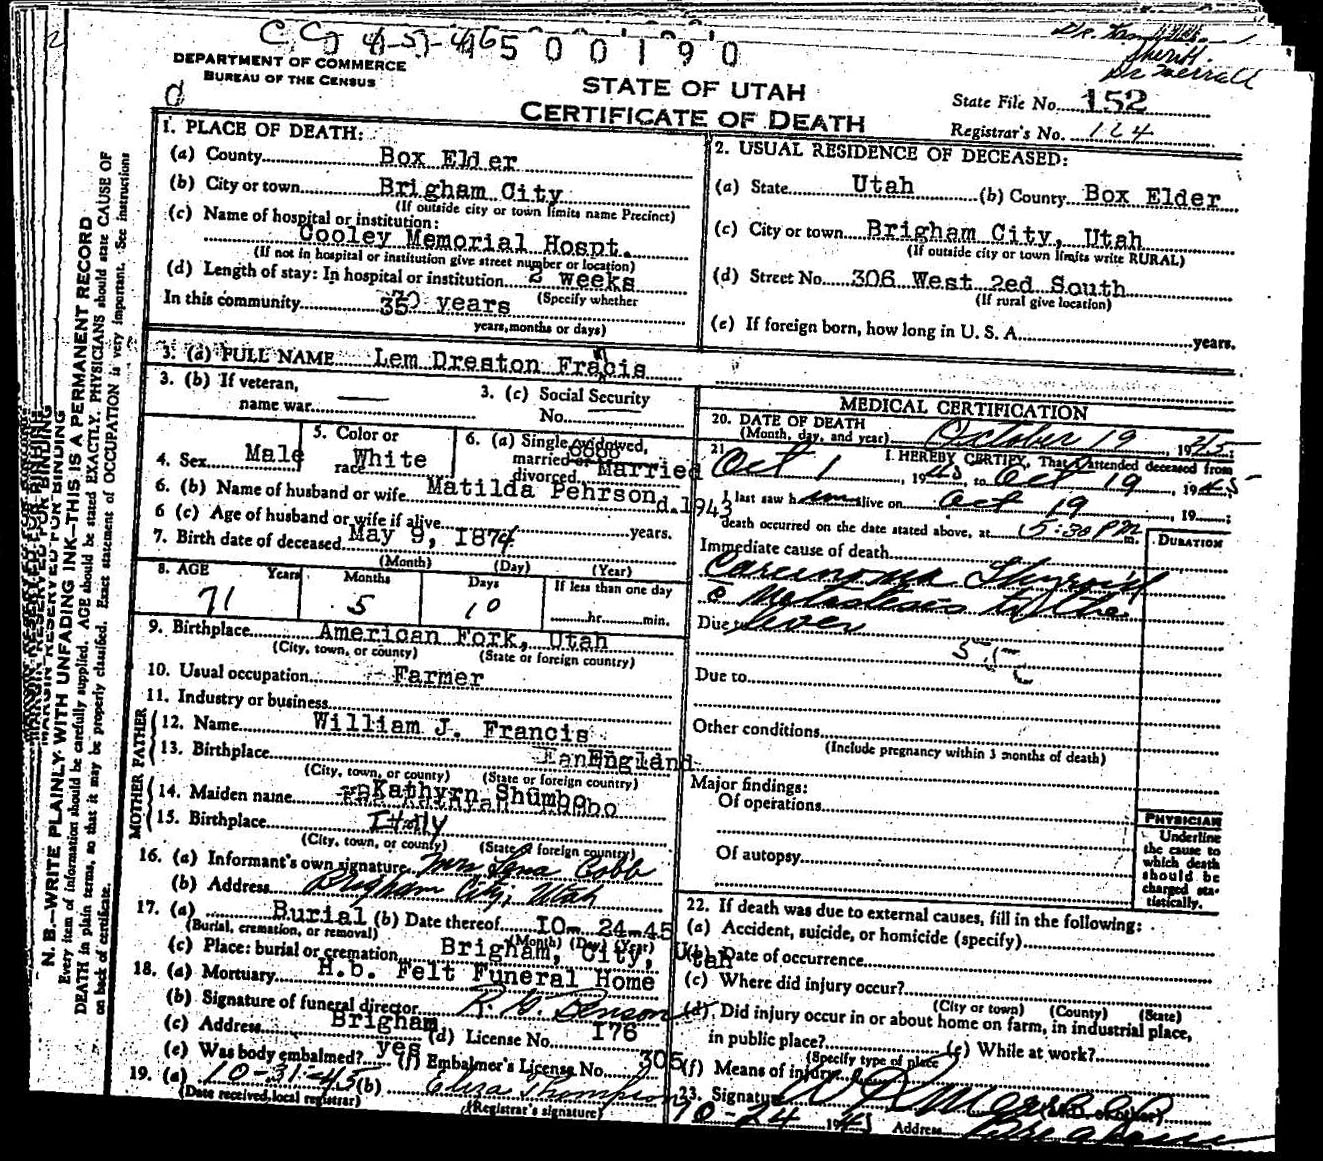 CC 4-5-46 500190
Sheriff.
Dr Merrall
DEPARTMENT OF COMMERCE
BUREAU OF THE CENSUS
STATE OF UTAH
CERTIFICATE OF DEATH
State File No. 152
Registrar's No. 164
1. PLACE OF DEATH:
(a) County Box Elder
(b) City or town Brigham City
(If outside city or town limits name Precinct)
(c) Name of hospital or institution:
Cooley Memorial Hospt.
(If not in hospital or institution give street number or location)
(d) Length of stay: In hospital or institution 2 weeks
(Specify whether
In this community years
years, months or days)
2. USUAL RESIDENCE OF DECEASED:
(a) State Utah (b) County Box Elder
(c) City or town Brigham City, Utah
(If outside city or town limits write RURAL)
(d) Street No. 306 West 2ed South
(If rural give location)
(e) If foreign born, how long in U. S. A. years.
3. (a) FULL NAME Lem Dreston Fracis
n
3. (b) If veteran,
name war
3. (c) Social Security
No.
4. Sex Male
5. Color or
race White
6. (a) Single, widowed,
married or
divorced Married
6. (b) Name of husband or wife Matilda Pehrson d.1943
6 (c) Age of husband or wife if alive years.
7. Birth date of deceased May 9, 1874
(Month) (Day) (Year)
8. AGE Years Months Days If less than one day
71 5 10 hr. min.
9. Birthplace American Fork, Utah
(City, town, or county) (State or foreign country)
10. Usual occupation Farmer
11. Industry or business
FATHER
12. Name William J. Francis
13. Birthplace England
(City, town, or county) (State or foreign country)
MOTHER
14. Maiden name Kathyrn Shumbo
15. Birthplace Italy
(City, town, or county) (State or foreign country)
16. (a) Informant's own signature Mrs Lena Cobb
(b) Address Brigham City, Utah
17. (a) Burial (b) Date thereof 10-24-45
(Burial, cremation, or removal) (Month) (Day) (Year)
(c) Place: burial or cremation Brigham, City, Utah
18. (a) Mortuary H.b. Felt Funeral Home
(b) Signature of funeral director R. G. Benson
(c) Address Brigham (d) License No. I76
(e) Was body embalmed? yes (f) Embalmer's License No. 305
19. (a) 10-31-45 (b) Eliza Thompson
(Date received, local registrar) (Registrar's signature)
MEDICAL CERTIFICATION
20. DATE OF DEATH
(Month, day, and year) October 19, 1945;
21. I HEREBY CERTIFY, That I attended deceased from
Oct 1, 1945, to Oct 19, 1945
I last saw him alive on Oct 19, 19 ;
death occurred on the date stated above, at 5:30 P m.
DURATION
Immediate cause of death
Carcinoma Thyroid
c Metastasis to the
Due to liver
55 c
Due to
Other conditions
(Include pregnancy within 3 months of death)
Major findings:
Of operations
Of autopsy
PHYSICIAN
Underline
the cause to
which death
should be
charged sta-
tistically.
22. If death was due to external causes, fill in the following:
(a) Accident, suicide, or homicide (specify)
(b) Date of occurrence
(c) Where did injury occur?
(City or town) (County) (State)
(d) Did injury occur in or about home on farm, in industrial place,
in public place? (e) While at work?
(Specify type of place
(f) Means of injury
23. Signature
10-24 1945 Address Brigham
N. B.—WRITE PLAINLY, WITH UNFADING INK—THIS IS A PERMANENT RECORD
Every item of information should be carefully supplied. AGE should be stated EXACTLY. PHYSICIANS should state CAUSE OF
DEATH in plain terms, so that it may be properly classified. Exact statement of OCCUPATION is very important. See instructions
on back of certificate.